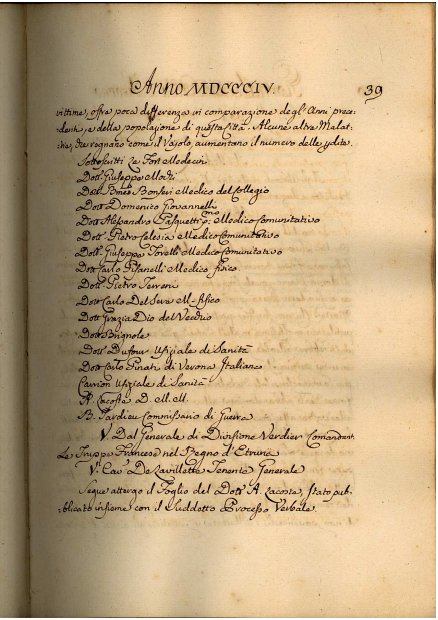 Anno MDCCCIV. 39
vittime, offre poca differenza in comparazione degl'Anni prece:
:denti, e della popolazione di questa Città. Alcune altre Malat:
:tie, che regnano come il Vajolo, aumentano il numero delle
Sottoscritti
Dott. Giuseppe
Dott. Medico del Collegio
Dott. Domenico Giovannelli
Dott. Alessandro Pasquetti Medico Comunitativo
Dott. Pietro Celesia Medico Comunitativo
Dott. Giuseppe Torelli Medico Comunitativo
Dott. Carlo Pisanelli Medico fisico
Dott. Pietro Terreni
Dott. Carlo Del Sere M. fisico
Dott. Grazia Dio del Vecchio
Dott. Brignole
Dott. Dufour Ufiziale di Sanità
Dott. Carlo Pinali di Verona Italiano
Carrion Ufiziale di Sanità
A. Lacoste D. M. M.
B. Tardieu Commissario di Guerra
V. Dal Generale di Divisione Verdier Comandant.
Le Truppe Francesi nel Regno d'Etruria
V. Cav. De Lavillette Tenente Generale
Segue attergo il Foglio del Dott. A. Lacoste, stato pub:
:blicato insieme con il suddetto Processo Verbale.